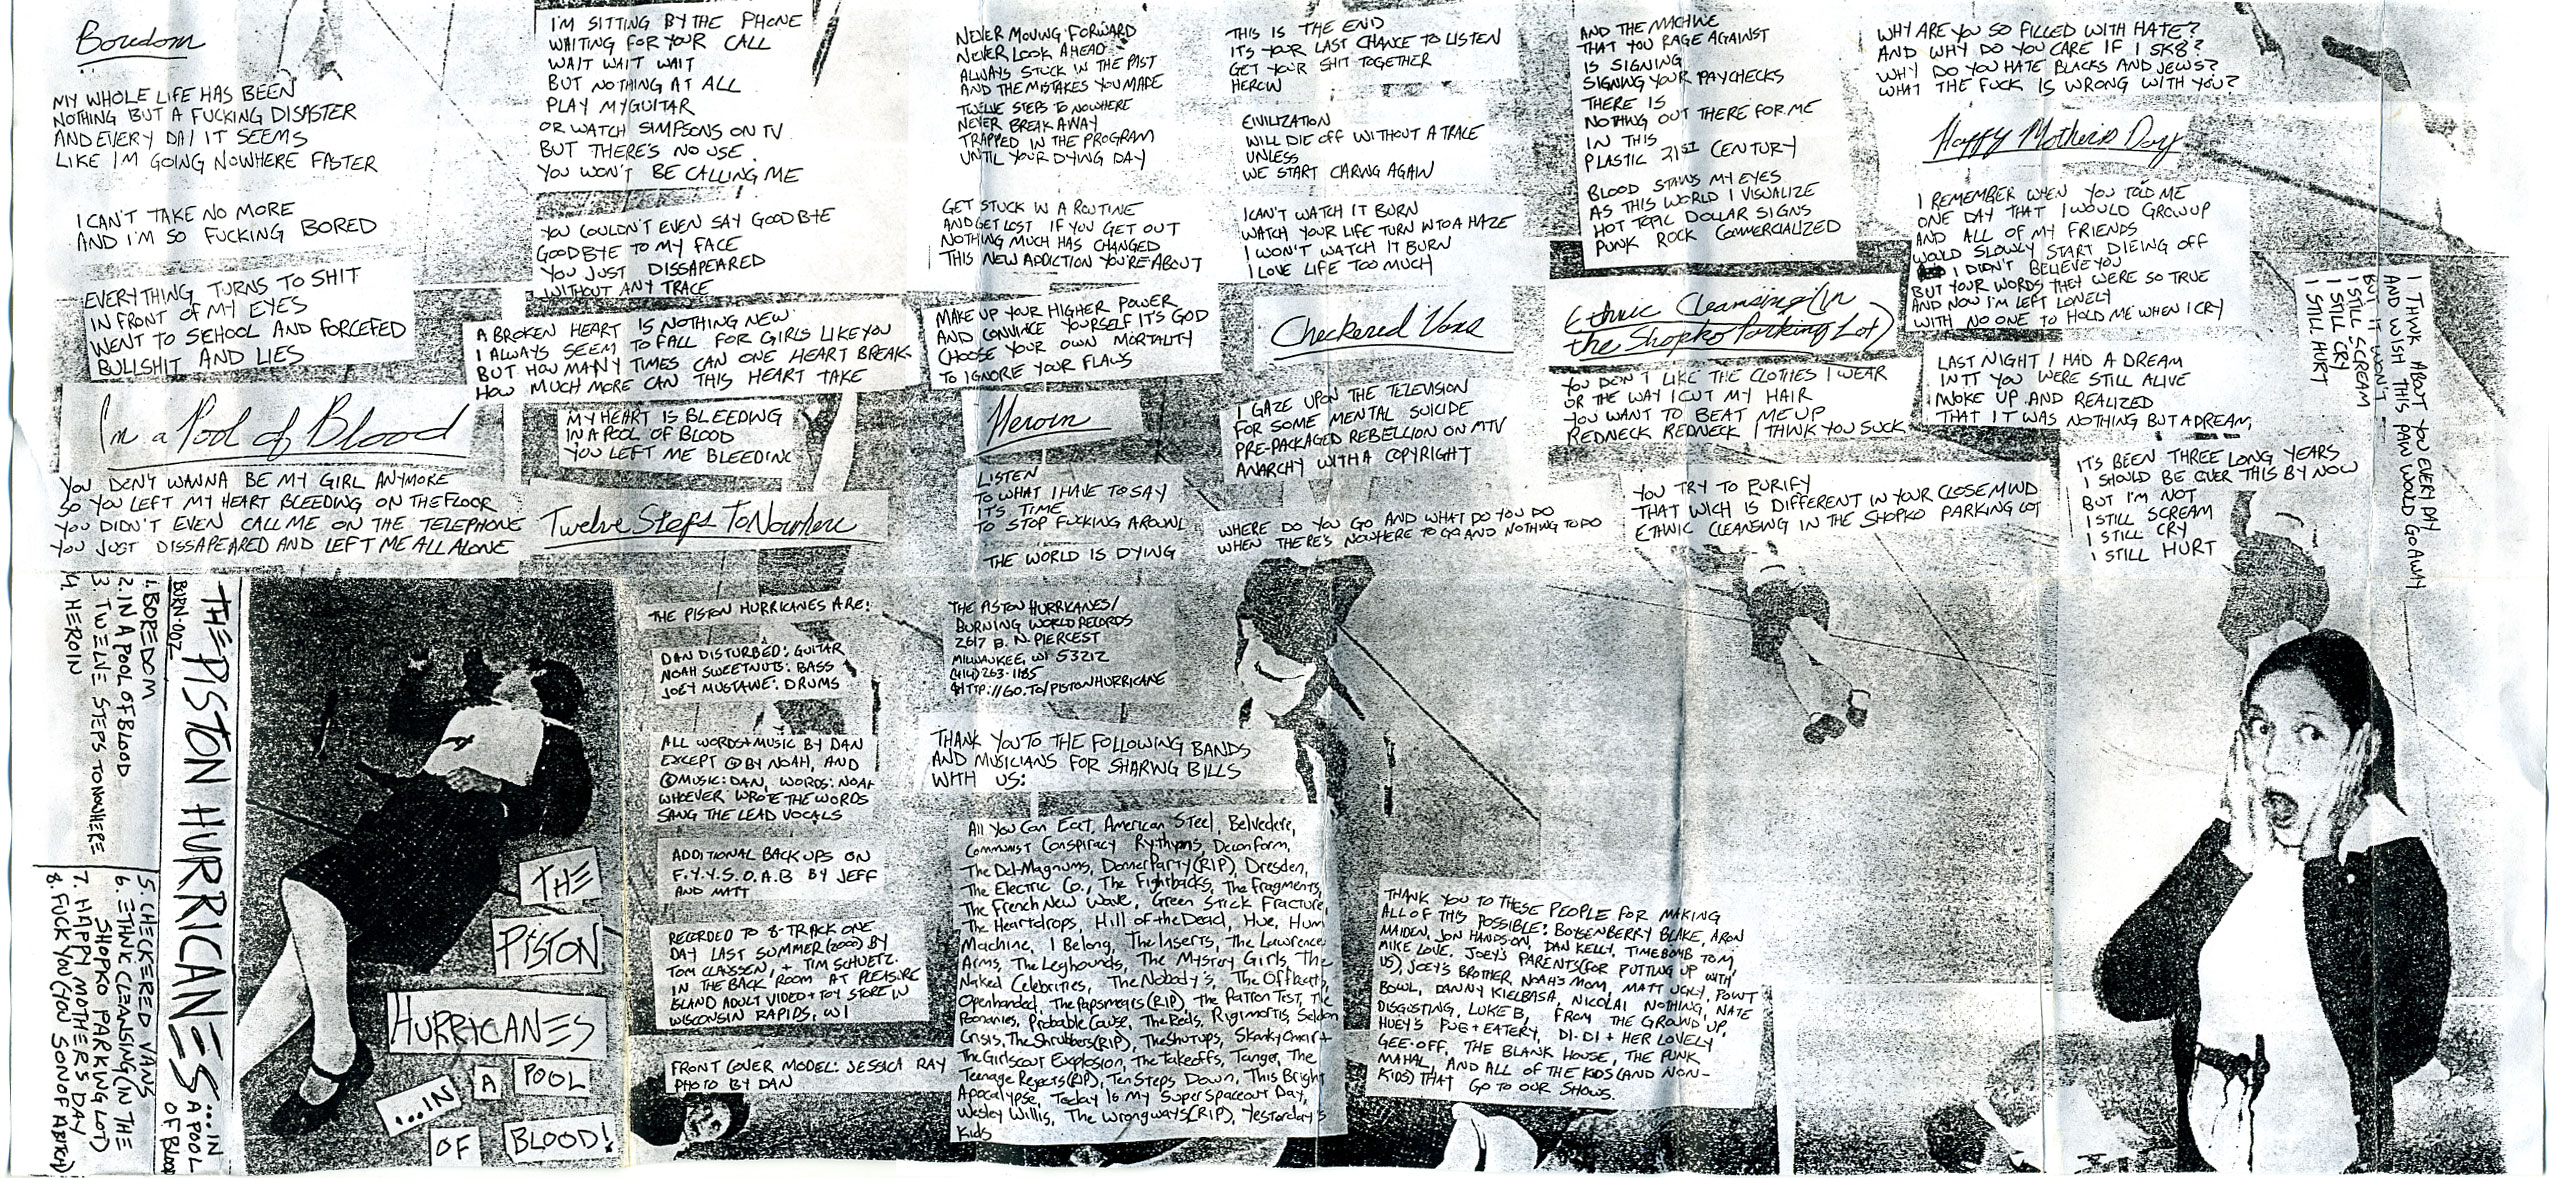 Boredom
MY WHOLE LIFE HAS BEEN
NOTHING BUT A FUCKING DISASTER
AND EVERY DAY IT SEEMS
LIKE I'M GOING NOWHERE FASTER
I CAN'T TAKE NO MORE
AND I'M SO FUCKING BORED
EVERYTHING TURNS TO SHIT
IN FRONT OF MY EYES
WENT TO SCHOOL AND FORCEFED
BULLSHIT AND LIES
I'm a Pool of Blood
YOU DON'T WANNA BE MY GIRL ANYMORE
SO YOU LEFT MY HEART BLEEDING ON THE FLOOR
YOU DIDN'T EVEN CALL ME ON THE TELEPHONE
YOU JUST DISSAPEARED AND LEFT ME ALL ALONE
I'M SITTING BY THE PHONE
WAITING FOR YOUR CALL
WAIT WAIT WAIT
BUT NOTHING AT ALL
PLAY MY GUITAR
OR WATCH SIMPSONS ON TV
BUT THERE'S NO USE
YOU WON'T BE CALLING ME
YOU COULDN'T EVEN SAY GOODBYE
GOODBYE TO MY FACE
YOU JUST DISSAPEARED
WITHOUT ANY TRACE
A BROKEN HEART IS NOTHING NEW
I ALWAYS SEEM TO FALL FOR GIRLS LIKE YOU
BUT HOW MANY TIMES CAN ONE HEART BREAK
HOW MUCH MORE CAN THIS HEART TAKE
MY HEART IS BLEEDING
IN A POOL OF BLOOD
YOU LEFT ME BLEEDING
Twelve Steps To Nowhere
NEVER MOVING FORWARD
NEVER LOOK AHEAD
ALWAYS STUCK IN THE PAST
AND THE MISTAKES YOU MADE
TWELVE STEPS TO NOWHERE
NEVER BREAK AWAY
TRAPPED IN THE PROGRAM
UNTIL YOUR DYING DAY
GET STUCK IN A ROUTINE
AND GET LOST IF YOU GET OUT
NOTHING MUCH HAS CHANGED
THIS NEW ADDICTION YOU'RE ABOUT
MAKE UP YOUR HIGHER POWER
AND CONVINCE YOURSELF IT'S GOD
CHOOSE YOUR OWN MORTALITY
TO IGNORE YOUR FLAWS
Heroin
LISTEN
TO WHAT I HAVE TO SAY
IT'S TIME
TO STOP FUCKING AROUND
THE WORLD IS DYING
THIS IS THE END
IT'S YOUR LAST CHANCE TO LISTEN
GET YOUR SHIT TOGETHER
HEROIN
CIVILIZATION
WILL DIE OFF WITHOUT A TRACE
UNLESS
WE START CARING AGAIN
I CAN'T WATCH IT BURN
WATCH YOUR LIFE TURN INTO A HAZE
I WON'T WATCH IT BURN
I LOVE LIFE TOO MUCH
Checkered Vans
I GAZE UPON THE TELEVISION
FOR SOME MENTAL SUICIDE
PRE-PACKAGED REBELLION ON MTV
ANARCHY WITH A COPYRIGHT
WHERE DO YOU GO AND WHAT DO YOU DO
WHEN THERE'S NOWHERE TO GO AND NOTHING TO DO
AND THE MACHINE
THAT YOU RAGE AGAINST
IS SIGNING
SIGNING YOUR PAYCHECKS
THERE IS
NOTHING OUT THERE FOR ME
IN THIS
PLASTIC 21ST CENTURY
BLOOD STAINS MY EYES
AS THIS WORLD I VISUALIZE
HOT TOPIC DOLLAR SIGNS
PUNK ROCK COMMERCIALIZED
Ethnic Cleansing (In
the Shopko Parking Lot)
YOU DON'T LIKE THE CLOTHES I WEAR
OR THE WAY I CUT MY HAIR
YOU WANT TO BEAT ME UP
REDNECK REDNECK I THINK YOU SUCK
YOU TRY TO PURIFY
THAT WICH IS DIFFERENT IN YOUR CLOSE MIND
ETHNIC CLEANSING IN THE SHOPKO PARKING LOT
WHY ARE YOU SO FILLED WITH HATE?
AND WHY DO YOU CARE IF I SK8?
WHY DO YOU HATE BLACKS AND JEWS?
WHAT THE FUCK IS WRONG WITH YOU?
Happy Mothers Day
I REMEMBER WHEN YOU TOLD ME
ONE DAY THAT I WOULD GROW UP
AND ALL OF MY FRIENDS
WOULD SLOWLY START DIEING OFF
I DIDN'T BELIEVE YOU
BUT YOUR WORDS THEY WERE SO TRUE
AND NOW I'M LEFT LONELY
WITH NO ONE TO HOLD ME WHEN I CRY
LAST NIGHT I HAD A DREAM
IN IT YOU WERE STILL ALIVE
I WOKE UP AND REALIZED
THAT IT WAS NOTHING BUT A DREAM,
IT'S BEEN THREE LONG YEARS
I SHOULD BE OVER THIS BY NOW
BUT I'M NOT
I STILL SCREAM
I STILL CRY
I STILL HURT
I THINK ABOUT YOU EVERY DAY
AND WISH THIS PAIN WOULD GO AWAY
BUT IT WON'T
I STILL SCREAM
I STILL CRY
I STILL HURT
THE PISTON HURRICANES...IN A POOL OF BLOOD
BURN-007
1. BOREDOM
2. IN A POOL OF BLOOD
3. TWELVE STEPS TO NOWHERE
4. HEROIN
5. CHECKERED VANS
6. ETHNIC CLEANSING (IN THE
SHOPKO PARKING LOT)
7. HAPPY MOTHERS DAY
8. FUCK YOU (YOU SON OF A BITCH)
THE
PISTON
HURRICANES
...IN A POOL
OF BLOOD!
THE PISTON HURRICANES ARE:
DAN DISTURBED: GUITAR
NOAH SWEETNUTS: BASS
JOEY MUSTAINE: DRUMS
ALL WORDS+MUSIC BY DAN
EXCEPT BY NOAH, AND
MUSIC: DAN, WORDS: NOAH
WHOEVER WROTE THE WORDS
SANG THE LEAD VOCALS
ADDITIONAL BACK UPS ON
F.Y.Y.S.O.A.B BY JEFF
AND MATT
RECORDED TO 8-TRACK ONE
DAY LAST SUMMER (2000) BY
TOM CLASSEN, + TIM SCHUETZ
IN THE BACK ROOM AT PLEASURE
ISLAND ADULT VIDEO+TOY STORE IN
WISCONSIN RAPIDS, WI
FRONT COVER MODEL: JESSICA RAY
PHOTO BY DAN
THE PISTON HURRICANES/
BURNING WORLD RECORDS
2617 B. N. PIERCE ST
MILWAUKEE, WI 53212
(414) 263-1185
HTTP://GO.TO/PISTONHURRICANE
THANK YOU TO THE FOLLOWING BANDS
AND MUSICIANS FOR SHARING BILLS
WITH US:
All You Can Eat, American Steel, Belvedere,
Communist Conspiracy Rythyms, Deconform,
The Del-Magnums, Donner Party (RIP), Dresden,
The Electric Co., The Fightbacks, The Fragments,
The French New Wave, Green Stick Fracture,
The Heartdrops, Hill of the Dead, Hue, Hum
Machine, I Belong, The Inserts, The Lawrence
Arms, The Leghounds, The Mystery Girls, The
Naked Celebrities, The Nobody's, The Offbeats,
Openhanded, The Papsmears (RIP), The Patron Test, The
Poonanies, Probable Cause, The Reds, Rigimortis, Seldon
Crisis, The Shrubbers (RIP), The Shutups, Skanky Omar +
The Girlscout Explosion, The Takeoffs, Tanger, The
Teenage Rejects (RIP), Ten Steps Down, This Bright
Apocalypse, Today Is My Super Spaceout Day,
Wesley Willis, The Wrongways (RIP), Yesterday's
Kids
THANK YOU TO THESE PEOPLE FOR MAKING
ALL OF THIS POSSIBLE: BOYSENBERRY BLAKE, ARON
MAIDEN, JON HANDS-ON, DAN KELLY, TIMEBOMB TOM,
MIKE LOVE, JOEY'S PARENTS (FOR PUTTING UP WITH
US), JOEY'S BROTHER NOAH'S MOM, MATT UGLY, POWT
BOWL, DANNY KIELBASA, NICOLAI NOTHING, NATE
DISGUSTING, LUKE B, FROM THE GROUND UP,
HUEY'S PUB+EATERY, DI-DI + HER LOVELY
GEE-OFF, THE BLANK HOUSE, THE PUNK
MAHAL, AND ALL OF THE KIDS (AND NON-
KIDS) THAT GO TO OUR SHOWS.